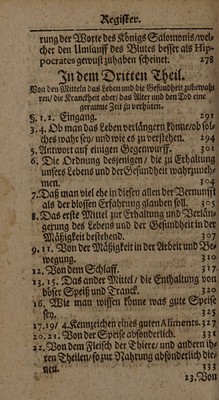 Register.
rung der Worte des Königs Salomonis/wel-
cher den Umlauff des Blutes besser als Hip-
pocrates gewust zuhaben scheinet. 278
In dem Dritten Theil.
Von den Mitteln das Leben und die Gesundheit zubewah-
ren/ die Kranckheit aber/ das Alter und den Tod eine
geraume Zeit zu verhüten.
§. 1. 2. Eingang. 291
3. 4. Ob man das Leben verlängern könne/ob sol-
ches wahr sey/und wie es zu verstehen. 294
5. Antwort auf einigen Gegenwurff. 301
6. Die Ordnung desjenigen/ die zu Erhaltung
unsers Lebens und der Gesundheit wahrzuneh-
men. 304
7. Daß man viel ehe in diesen allen der Vernunft
als der blossen Erfahrung glauben soll. 305
8. Das erste Mittel zur Erhaltung und Verlän-
gerung des Lebens und der Gesundheit in der
Mäßigkeit bestehend. 307
9. 11. Von der Mäßigkeit in der Arbeit und Be-
wegung. 310
12. Von dem Schlaff. 317
13. 15. Das ander Mittel/ die Enthaltung von
böser Speiß und Tranck. 320
16. Wie man wissen könne was gute Speise
sey. 325
17. 19/ 4. Kennzeichen eines guten Aliments. 327
20. 21. Von der Speise absonderlich. 331
22. Von dem Fleisch der Thiere/ und andern ih-
ren Theilen/so zur Nahrung absonderlich die-
nen. 333
23. Von